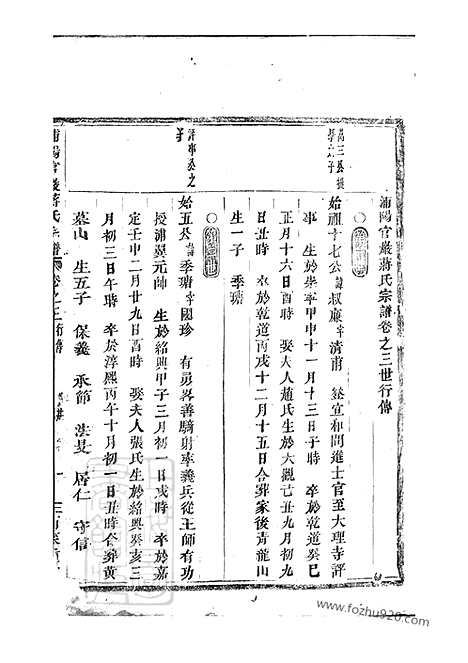 浦陽官巖蔣氏宗譜卷之三世行傳
始祖十七公諱叔廉字清甫 登宣和間進士官至大理寺評
事 生於崇寧甲申十一月十三日子時 卒於乾道癸巳
正月十六日酉時 娶夫人趙氏生於大觀 九月初九
日丑時 卒於乾道丙戌十二月十五日合葬家後青龍山
生一子 季瑭
始五公諱季瑭字國珍 有勇畧善騎射率義兵從王師有功
授浦翼元帥 生於紹興甲子三月初一日戌時 卒於嘉
定壬申二月廿九日酉時 娶夫人張氏生於紹興癸亥三
月初三日午時 卒於淳熙丙午十月初一日丑時合葬黃
墓山 生五子 保義 承節 法旻 居仁 守信
www.fozhu920.com